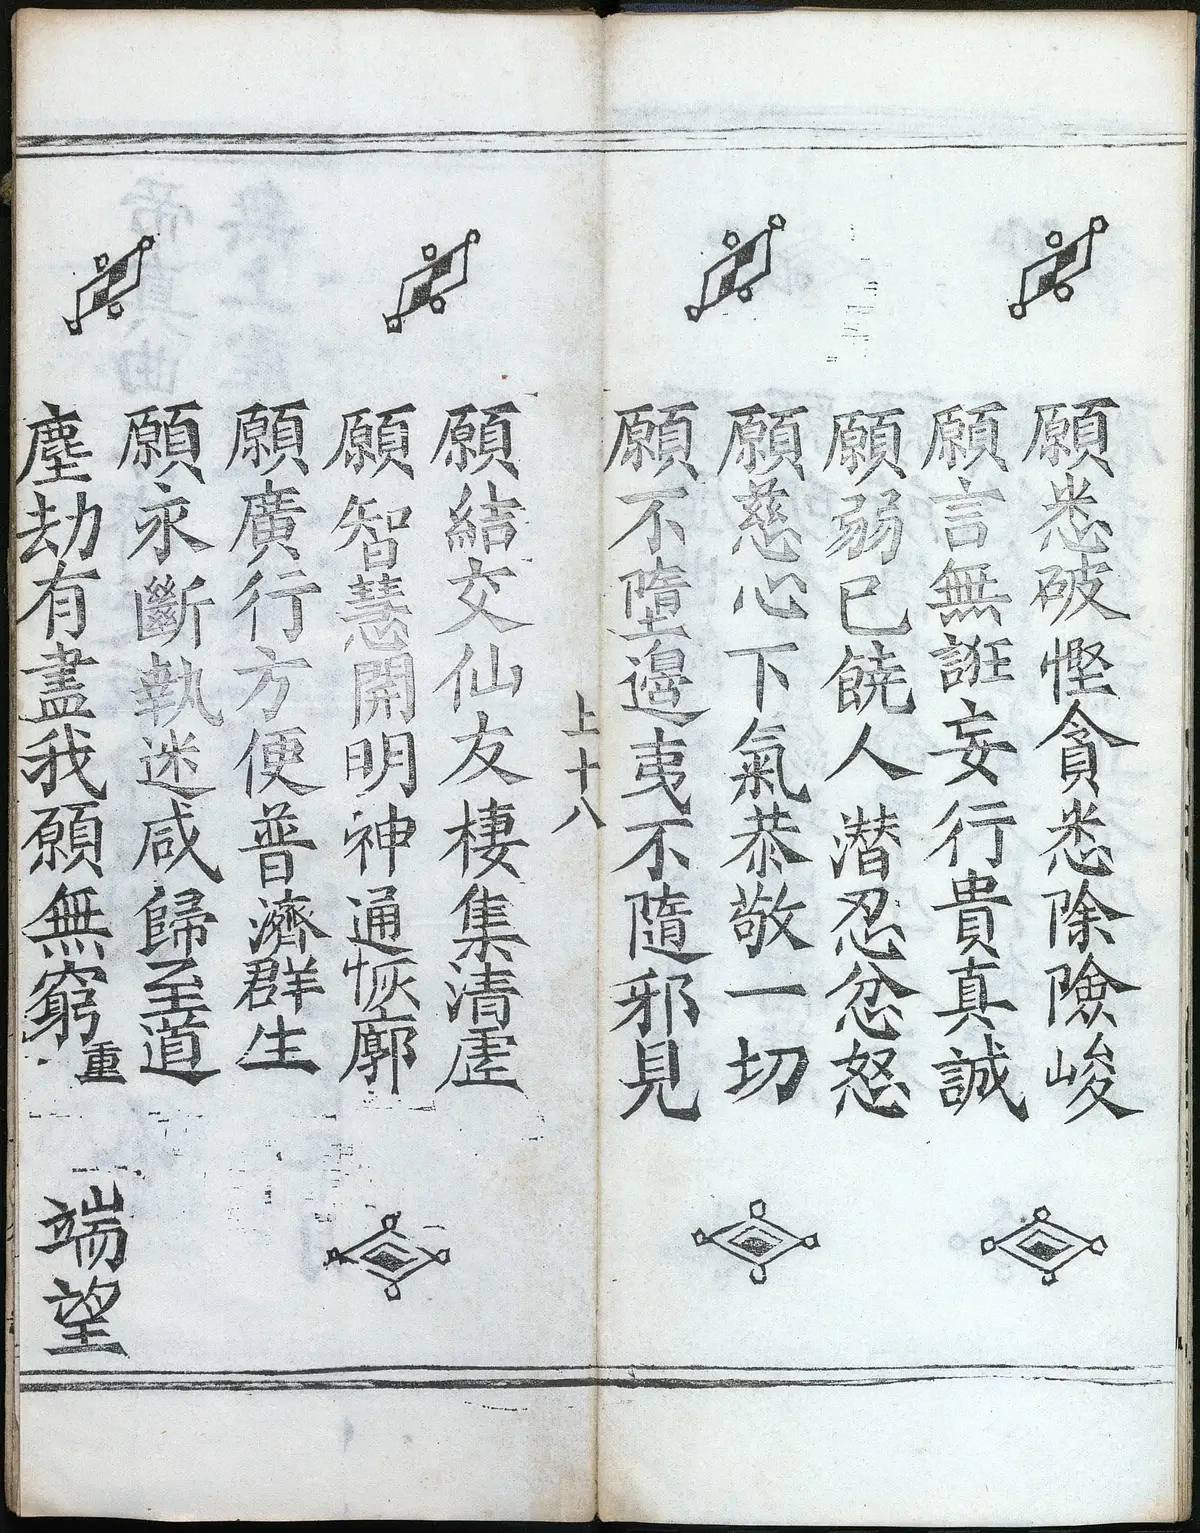 願悉破慳貪悉除險峻
願言無誑妄行貴真誠
願弱已饒人潜忍忿怒
願慈心下氣恭敬一切
願不墮邉夷不隨邪見
上十八
願結交仙友棲集清虛
願智慧開明神通恢廓
願廣行方便普濟群生
願永斷執迷咸歸至道
塵劫有盡我願無窮重
端望